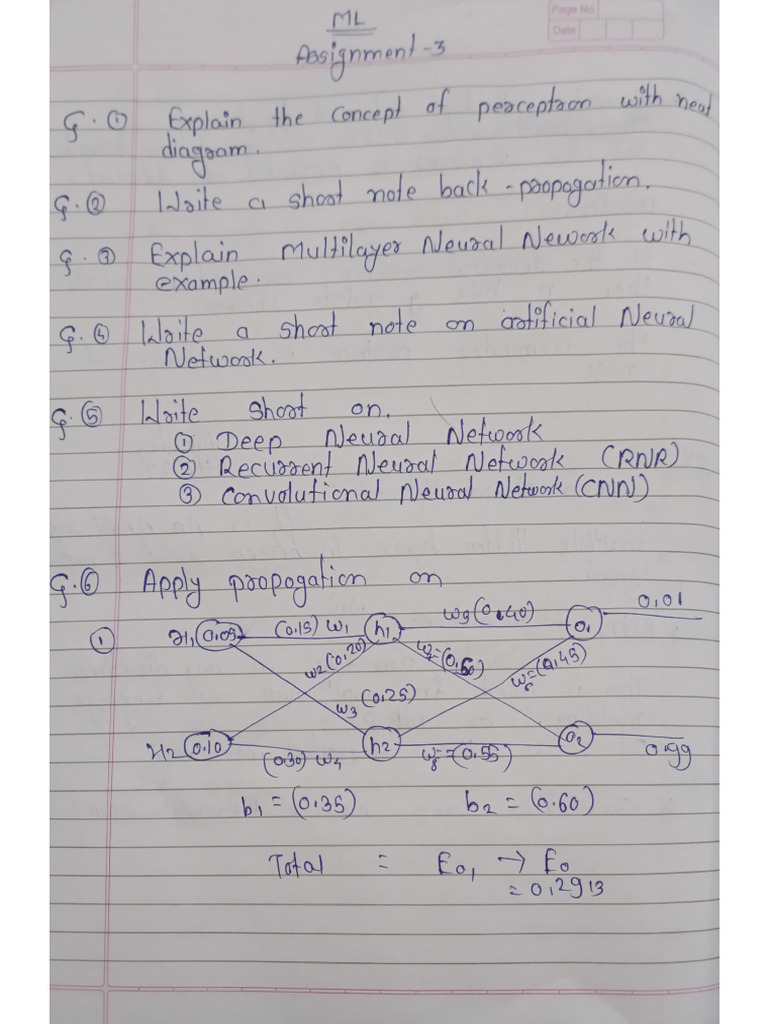 ML
Page No.
Date
Assignment-3
Q.① Explain the concept of perceptron with neat
diagram.
Q.② Write a short note back-propogation.
Q.③ Explain Multilayer Neural Nework with
example.
Q.④ Write a short note on artificial Neural
Network.
Q.⑤ Write short on.
① Deep Neural Network
② Recurrent Neural Network (RNR)
③ Convolutional Neural Network (CNN)
Q.⑥ Apply propogation on
①
x1 0.05 (0.15) w1 h1 w5(0.40) o1 0.01
w2(0.20) w7=(0.50) w6=(0.45)
w3 (0.25)
x2 0.10 (0.30) w4 h2 w8=(0.55) o2 0.99
b1 = (0.35) b2 = (0.60)
Total = Eo1 → Eo
= 0.2913